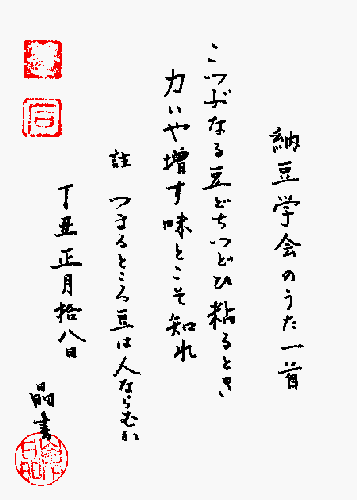 納豆学会のうた一首
こつぶなる豆どちつどひ粘るとき
力いや増す味とこそ知れ
註 つまるところ豆は人ならむか
丁丑正月拾八日
晶書